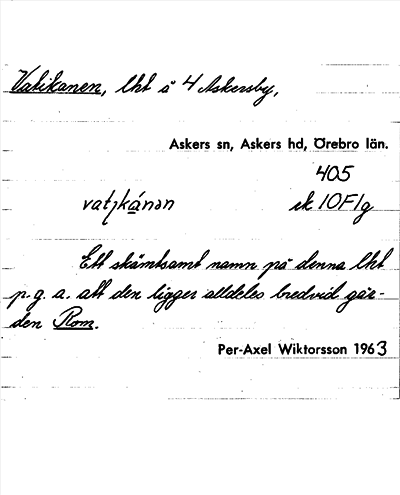 Vatikanen, lht å 4 Askersby,
Askers sn, Askers hd, Örebro län.
405
vatɩkánən ek 10F1g
Ett skämtsamt namn på denna lht
p. g. a. att den ligger alldeles bredvid går-
den Rom.
Per-Axel Wiktorsson 1963